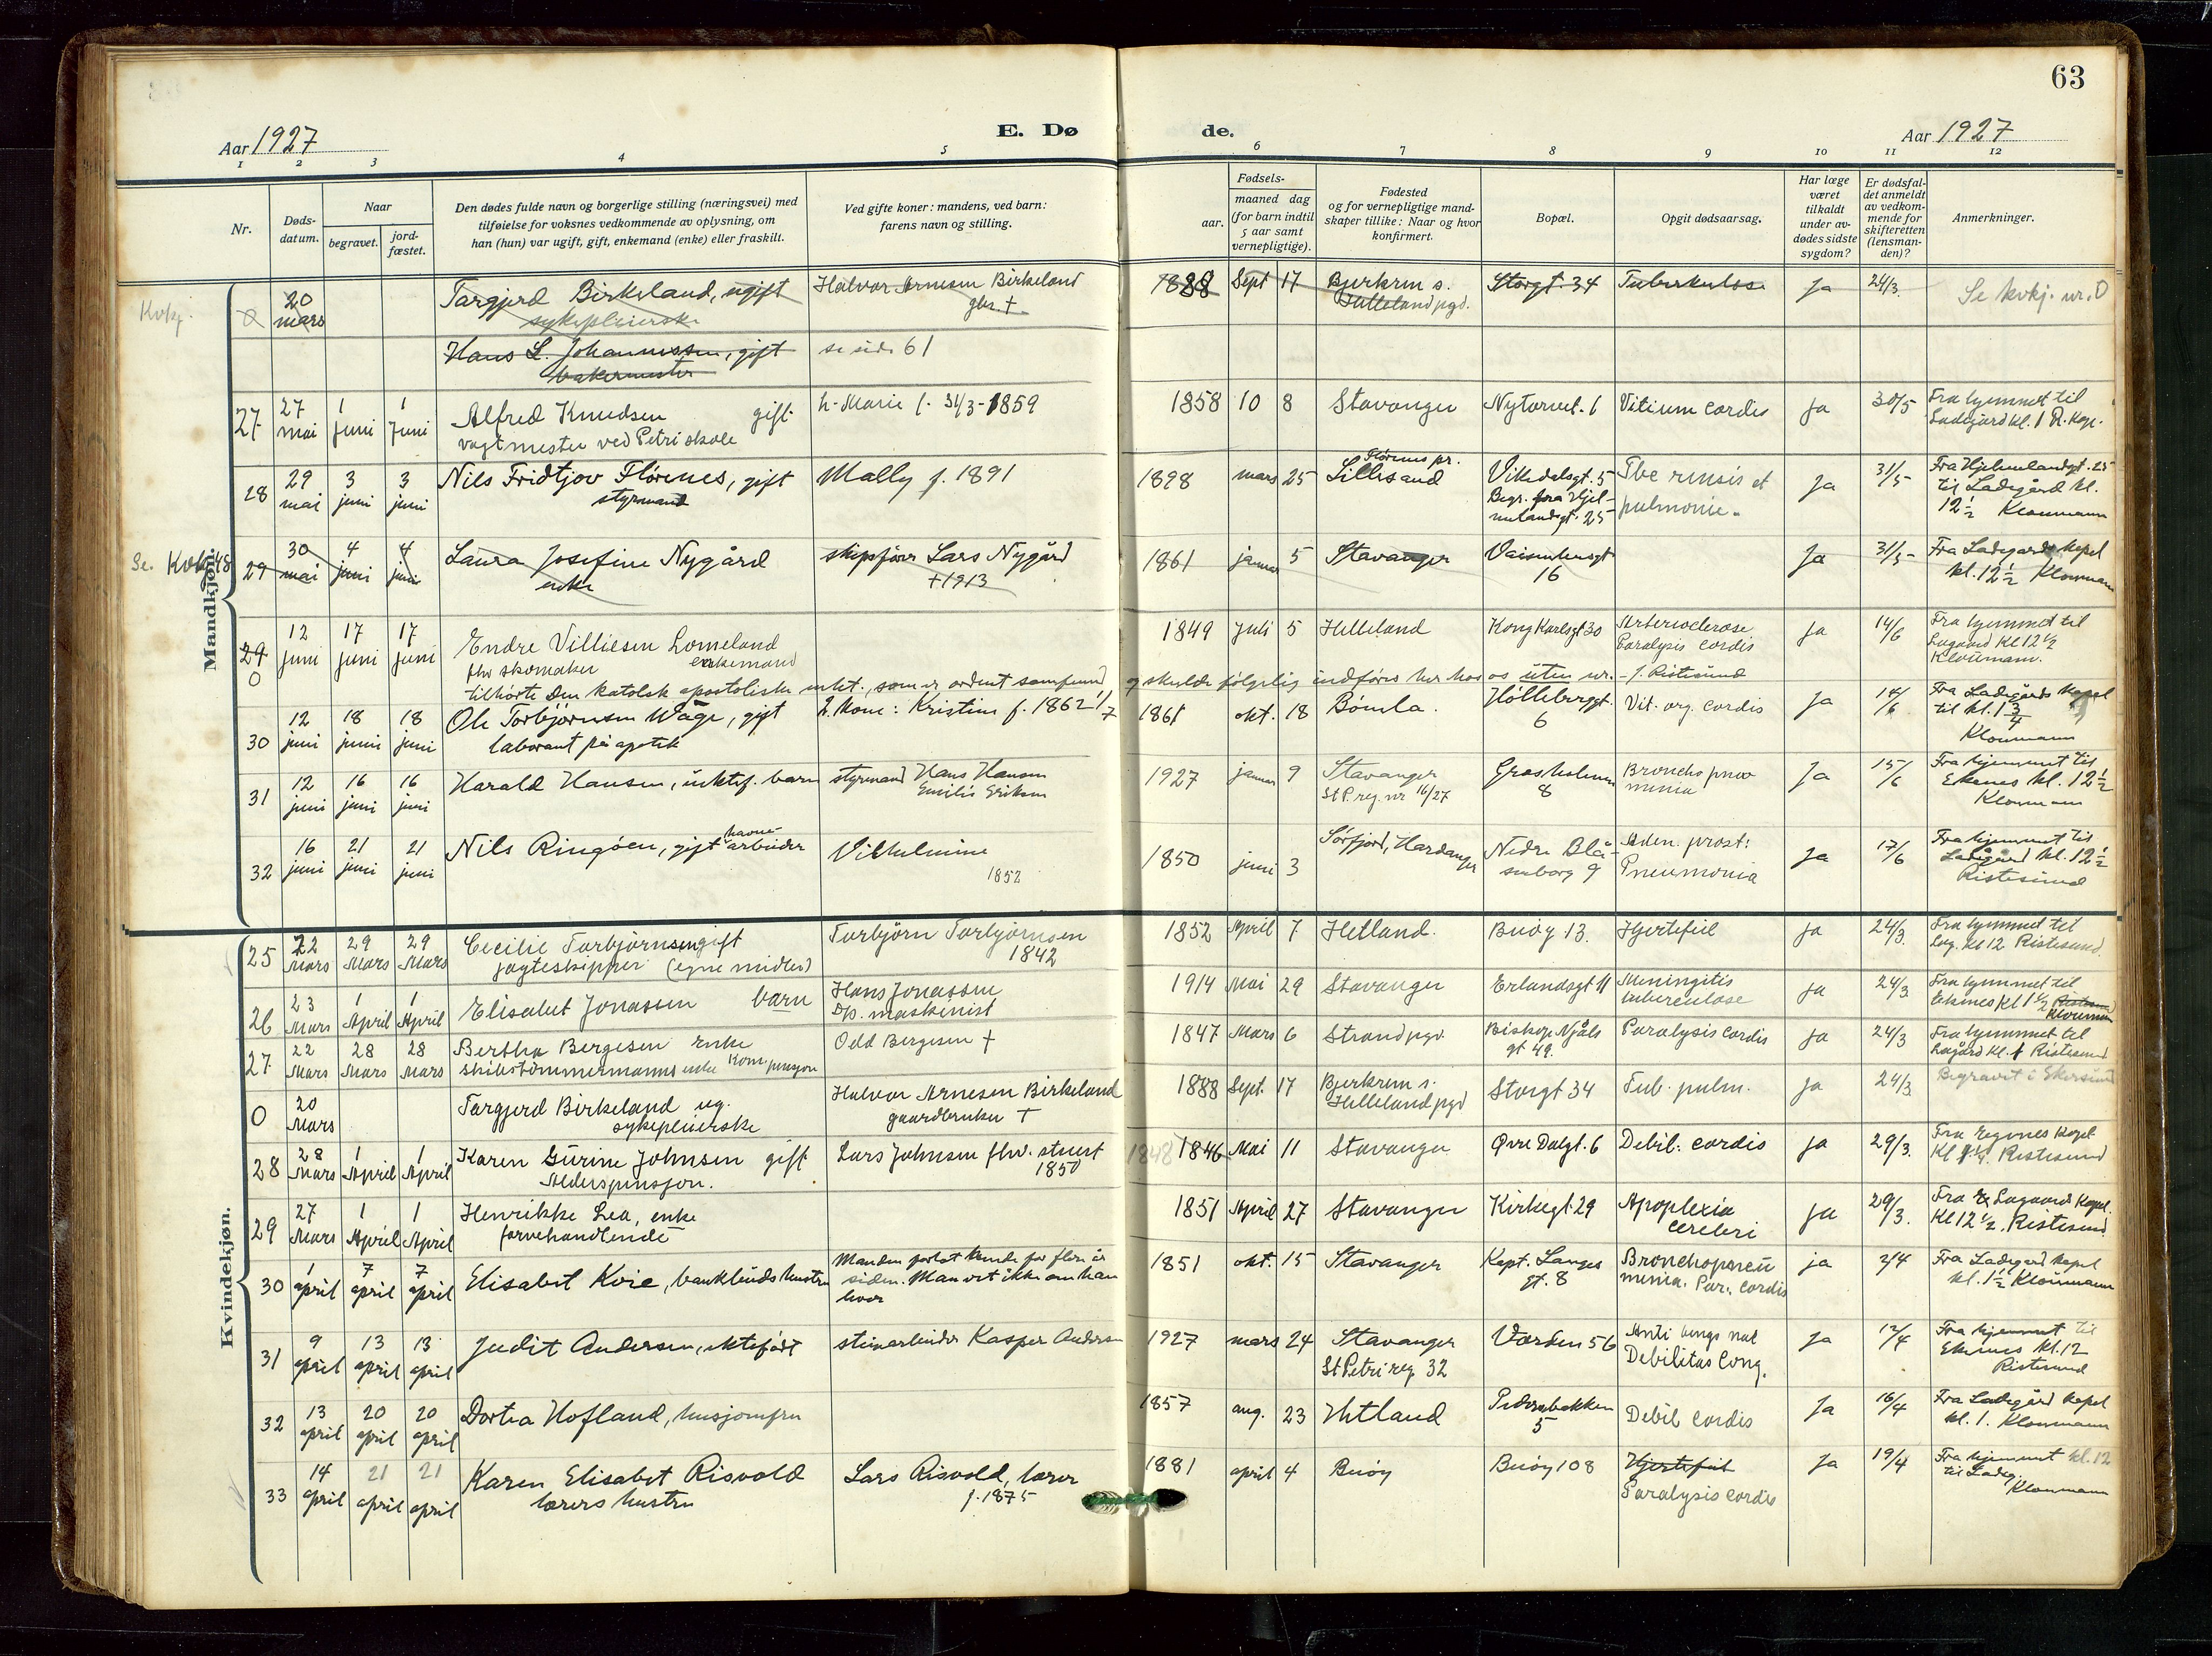 63
Aar 1927
E. Dø
de.
Aar 1927
1 2 3 4 5 6 7 8 9 10 11 12
Nr.
Døds-
datum.
Naar
begravet.
jord-
fæstet.
Den dødes fulde navn og borgerlige stilling (næringsvei) med
tilføielse for voksnes vedkommende av oplysning, om
han (hun) var ugift, gift, enkemand (enke) eller fraskilt.
Ved gifte koner: mandens, ved barn:
farens navn og stilling.
Fødsels-
aar.
maaned dag
(for barn indtil
5 aar samt
vernepligtige).
Fødested
og for vernepligtige mand-
skaper tillike: Naar og hvor
konfirmert.
Bopæl.
Opgit dødsaarsag.
Har læge
været
tilkaldt
under av-
dødes sidste
sygdom?
Er dødsfal-
det anmeldt
av vedkom-
mende for
skifteretten
(lensman-
den)?
Anmerkninger.
Mandkjøn.
Kvkj.
0 20 mars Targjerd Birkeland, ugift
sykepleierske
Halvor Arnesen Birkeland
gbr. +
1888 Sept 17 Bjerkrem s.
Helleland pgd.
Storgt. 34 Tuberkulose Ja 24/3. Se kvkj. nr. 0
Hans L. Johannessen, gift
bakermester
se side 61
27 27 mai 1 juni 1 juni Alfred Knudsen gift
vagtmester ved Petri skole
h. Marie f. 31/3-1859
1858 10 8 Stavanger Nytorvet. 1 Vitium cordis Ja 30/5 Fra hjemmet til
Ladegård kl. 1 R. Kap.
28 29 mai 3 juni 3 juni Nils Fridtjov Florenes, gift
styrmand
Mally f. 1891
1898 mars 25 Florenes pr.
Lillesand
Vikedalsgt. 5
Begr. fra Hjel-
melandsgt. 25
Tbc rensis et
pulmonie.
Ja 31/5 Fra Hjelmelandgt. 25
til Ladegård kl.
12 1/2 Kloumann
Se. Kvkj 48
29 30 mai 4 juni 4 juni Laura Josefine Nygård
enke
skipsfører Lars Nygård
+ 1913
1861 januar 5 Stavanger Vaisenhusgt
16
Ja 31/5 Fra Ladegårds kapel
kl. 12 1/2 Kloumann
29 0 12 juni 17 juni 17 juni Endre Villiesen Lomeland
fhv skomaker enkemand
1849 Juli 5 Helleland Kong Karlsgt 30 Arteriosclerose
Paralysis cordis
Ja 14/6 Fra hjemmet til
Lagaard Kl 12 1/2
Kloumann.
tilhørte den katolsk apostoliske ment., som er ordent samfund og skulde følgelig indføres her hos os uten nr. - J. Ristesund
30 12 juni 18 juni 18 juni Ole Torbjørnsen Wåge, gift
laborant på apotek
h. Kone: Kristine f. 1862 1/7
1861 okt. 18 Bømla. Hollebergt.
6
Vit. org. cordis Ja 14/6 Fra Ladegårds kapel
til kl. 1 3/4
Kloumann
31 12 juni 16 juni 16 juni Harald Hansen, uektef. barn styrmand Hans Hansen
Emilie Eriksen
1927 januar 9 Stavanger
St P. reg. nr 16/27
Grasholmen
8
Bronchopneu
monia
Ja 15/6 Fra hjemmet til
Ekenes kl. 12 1/2
Kloumann
32 16 juni 21 juni 21 juni Nils Ringøen, gift havne-
arbeider
Vilhelmine
1852
1850 juni 3 Sørfjord, Hardanger Nedre Blå-
senborg 9
Aden. prost:
Pneumonia
Ja 17/6 Fra hjemmet til
Ladegård kl. 12 1/2
Ristesund
Kvindekjøn.
25 22 Mars 29 Mars 29 Mars Cecilie Torbjørnsen gift
jagteskipper (egne midler)
Torbjørn Torbjørnsen
1842
1852 April 7 Hetland. Buøy 13. Hjertefeil ja 24/3. Fra hjemmet til
Lag. kl 12 Ristesund.
26 23 Mars 1 April 1 April Elisabet Jonassen barn
Hans Jonassen
D/s. maskinist
1914 Mai 29 Stavanger Erlandsgt 11 Meningitis
tuberculose
ja 24/3 Fra hjemmet til
Eiksnes kl 1 1/2 Ristesund
Kloumann
27 22 Mars 28 Mars 28 Mars Bertha Bergesen enke
skibstømmermanns enke Kom. pensjon
Odd Bergesen +
1847 Mars 6 Strand pgd. Biskop Njåls
gt 49.
Paralysis cordis ja 24/3 Fra hjemmet til
Lagård kl. 1 Ristesund
0 20 Mars Targjerd Birkeland ug.
sykepleierske
Halvor Arnesen Birkeland
gaardbruker +
1888 Sept. 17 Bjerkrem s.
Helleland pgd
Storgt 34 Tub. pulm. ja 24/3. Begravet i Ekersund
28 28 Mars 1 April 1 April Karen Gurine Johnsen gift
Alderspensjon.
Lars Johnsen fhv. stuert
1850
1848 1846 Mai 11 Stavanger Øvre Dalgt. 6 Debil. cordis ja 29/3. Fra Egenes Kapel
Kl 1 1/4. Ristesund
29 27 Mars 1 April 1 April Henrikke Lea, enke
farvehandlende
1851 April 27 Stavanger Kirkegt 29 Apoplexia
cerebri
ja 29/3. Fra Lagaard Kapel.
Kl 12 1/2. Ristesund
30 1 april 7 april 7 april Elisabet Kvie, bankbuds hustru
Manden forlot hende for flere år
siden. Man vet ikke om han
lever
1851 okt. 15 Stavanger Kapt. Langes
gt. 8
Bronchopneu
monia. Par. cordis
ja 2/4 Fra Ladegård kapel
kl. 1 1/2 Kloumann
31 9 april 13 april 13 april Judit Andersen, ektefødt stenarbeider Kasper Andersen
1927 mars 24 Stavanger
St Petri reg 32
Vorden 56
Debilitas cong.
Ja 12/4 Fra hjemmet til
Ekenes kl. 12
Ristesund
32 13 april 20 april 20 april Dortea Hofland, husjomfru
1857 aug. 23 Hetland Pedersbakken
5
Debil cordis Ja 16/4 Fra Ladegård kapel
kl. 1. Kloumann
33 14 april 21 april 21 april Karen Elisabet Risvold
lærers hustru
Lars Risvold, lærer
f. 1875
1881 april 4 Buøy Buøy 108 Hjertefeil
Paralysis cordis
Ja 19/4 Fra hjemmet kl. 12
til Ladeg.
Kloumann